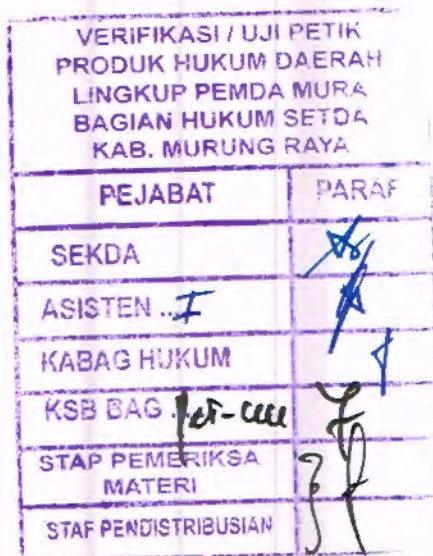 VERIFIKASI / UJI PETIK
PRODUK HUKUM DAERAH
LINGKUP PEMDA MURA
BAGIAN HUKUM SETDA
KAB. MURUNG RAYA
PEJABAT PARAF
SEKDA
ASISTEN .. I
KABAG HUKUM
KSB BAG
STAP PEMERIKSA
MATERI
STAF PENDISTRIBUSIAN